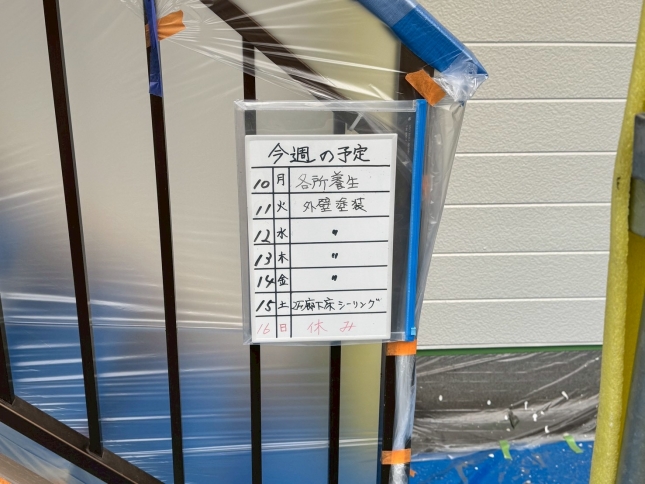 今週の予定
10 月 各所養生
11 火 外壁塗装
12 水 〃
13 木 〃
14 金 〃
15 土 2F廊下床シーリング
16 日 休み